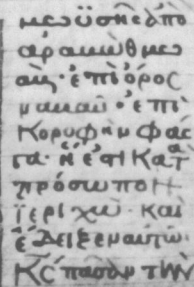 μωϋσῆς ἀπὸ
ἀραμὼθ μω
αβ· ἐπὶ ὄρος
ναβαῦ· ἐπὶ
κορυφὴν φασ
γα· ἥ ἐστι κατὰ
πρόσωπον
ϊεριχώ· καὶ
ἔδειξεν αὐτῷ
κς πᾶσαν τὴν